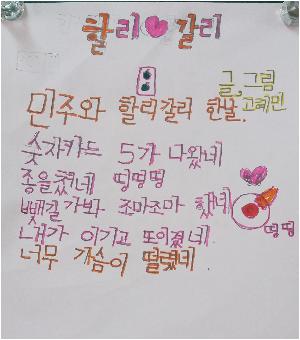 할리 갈리
글,그림
고혜민
민주와 할리갈리 한날.
숫자카드 5가 나왔네
종을쳤네 띵띵띵
뺏길가봐 조마조마 했네
내가 이기고 또이겼네.
너무 가슴이 떨렸네.
띵띵